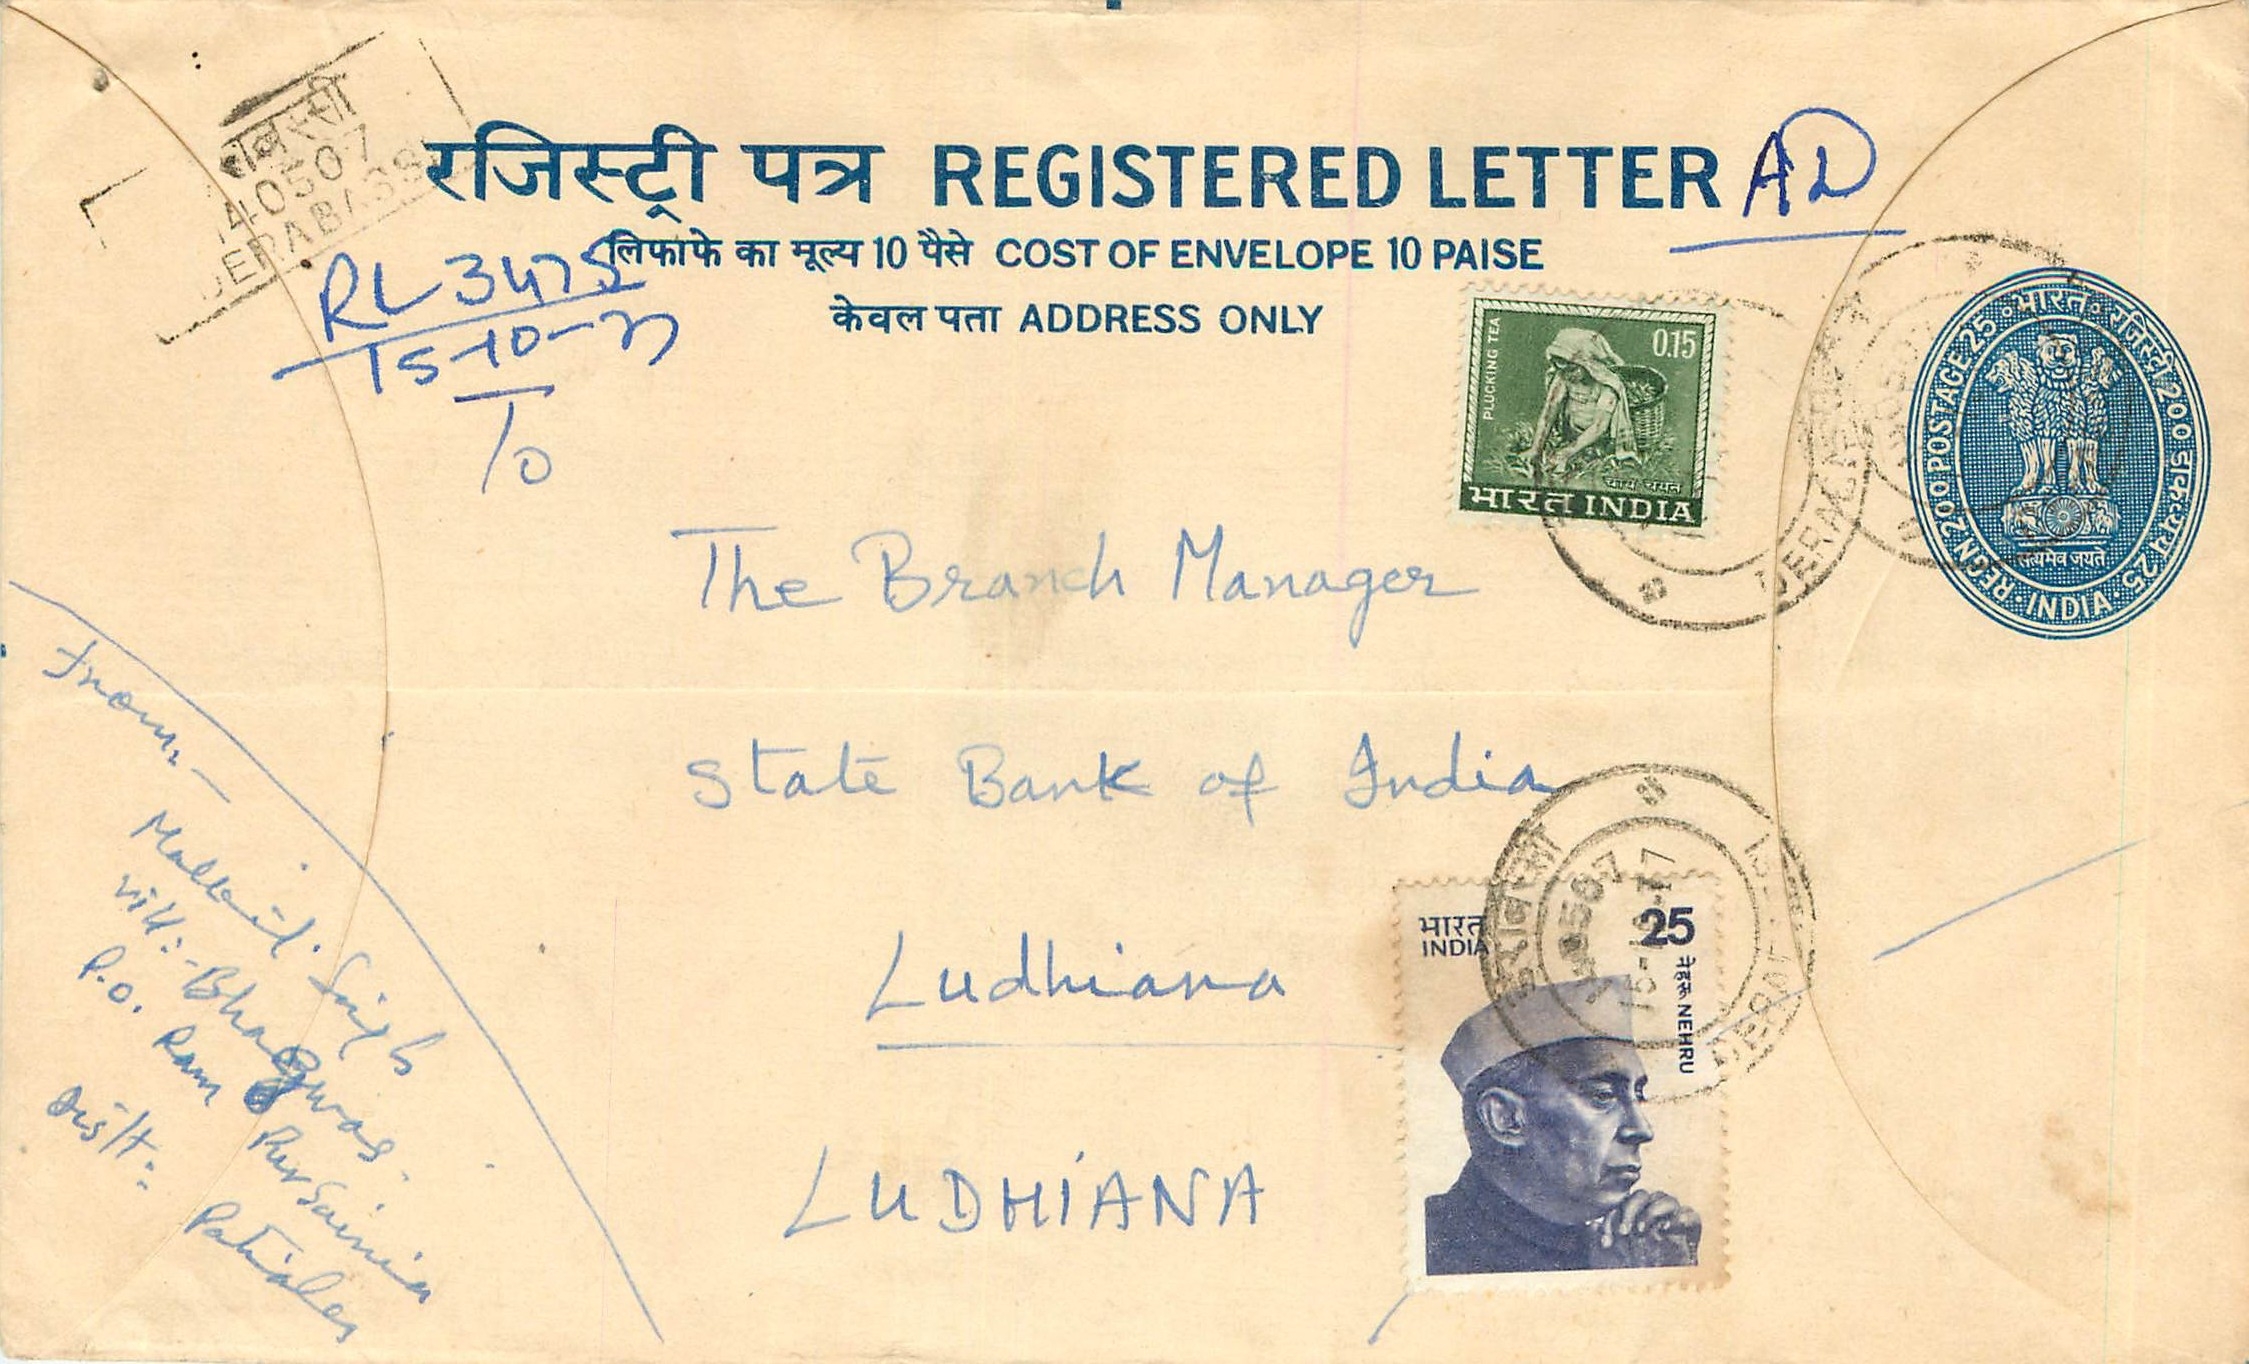 रजिस्ट्री पत्र REGISTERED LETTER AD
लिफाफे का मूल्य 10 पैसे COST OF ENVELOPE 10 PAISE
केवल पता ADDRESS ONLY
140507
DERABASSI
RL 3475
15-10-77
To
The Branch Manager
State Bank of India
Ludhiana
LUDHIANA
From:-
Malkit Singh
Vill:- Bhagwas.
P.O. Ram Pur Sainia
Distt: Patiala
PLUCKING TEA
0.15
चाय चयन
भारत INDIA
भारत रजिस्ट्री 200 डाकव्यय 25
INDIA REGN 200 POSTAGE 25
सत्यमेव जयते
भारत
INDIA
25
नेहरू NEHRU
140507